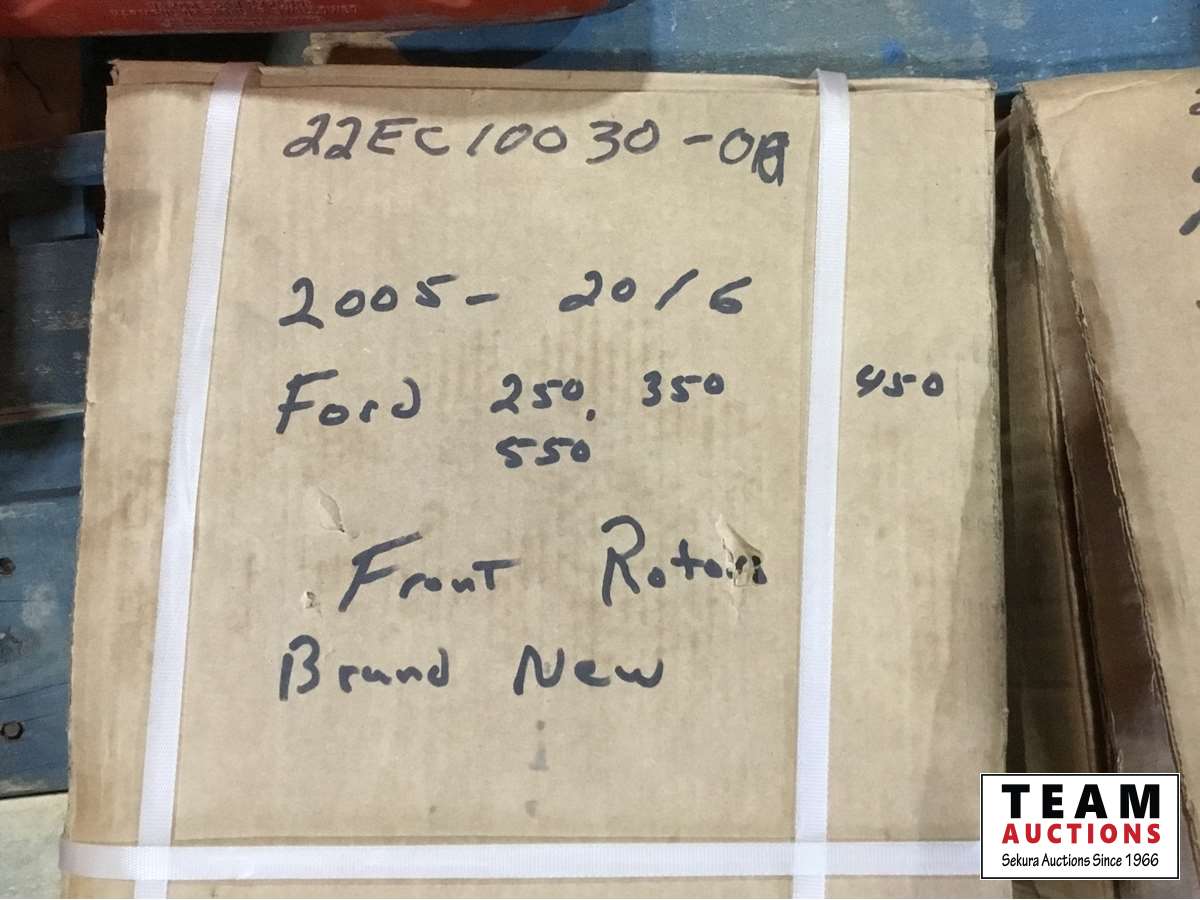 22EC10030-0
2005 - 2016
Ford 250, 350 450
550
Front Rotors
Brand New
TEAM
AUCTIONS
Sekura Auctions Since 1966